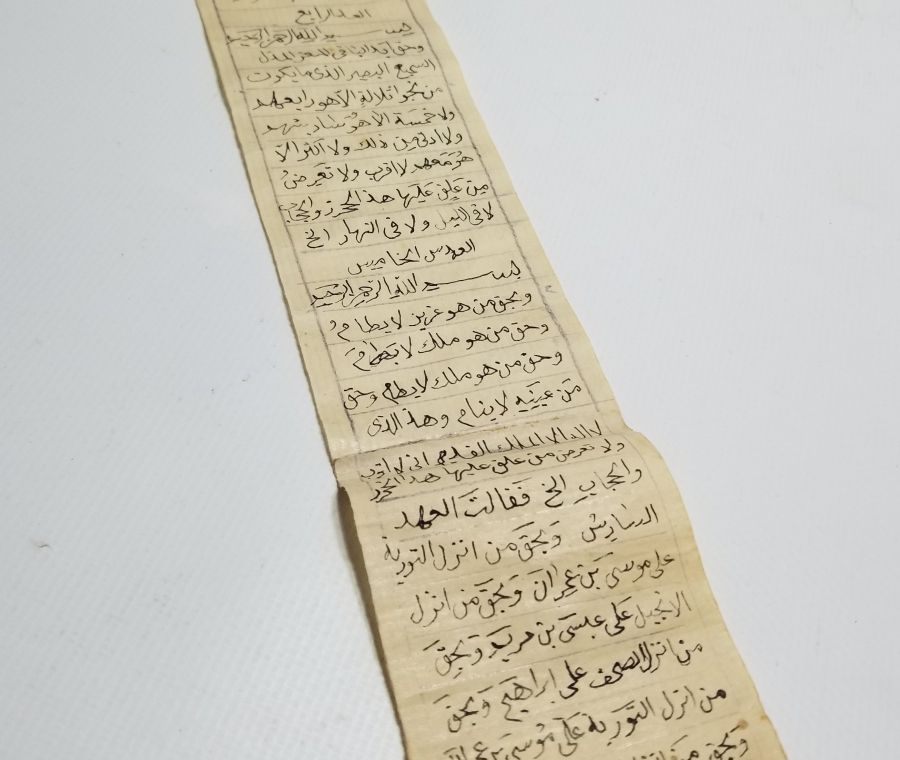 العهد الرابع
بســـــم الله الرحمن الرحيم
وحق
السميع البصير الذي ما يكون
من نجوا ثلاثة الا هو رابعهم
ولا خمسة الا هو سادسهم
ولا ادنى من ذلك ولا اكثر الا
هو معهم لا اقرب ولا تعرض
من علق عليها هذا الحرز والحجاب
لا في الليل ولا في النهار الخ
العهد الخامس
بســـــم الله الرحمن الرحيم
وبحق من هو عزيز لا يظام
وحق من هو ملك لا
وحق من هو ملك لا يظام وحق
من عينيه لا ينام وهذا الذي
لا اله الا الملك اني لا اقرب
ولا تعرض من علق عليها هذا الحرز
والحجاب الخ فقالت العهد
السادس وبحق من انزل التورية
على موسى بن عمران وبحق من انزل
الانجيل على عيسى بن مريم وبحق
من انزل الصحف على ابراهيم وبحق
من انزل التورية على موسى بن عمران
وبحق من